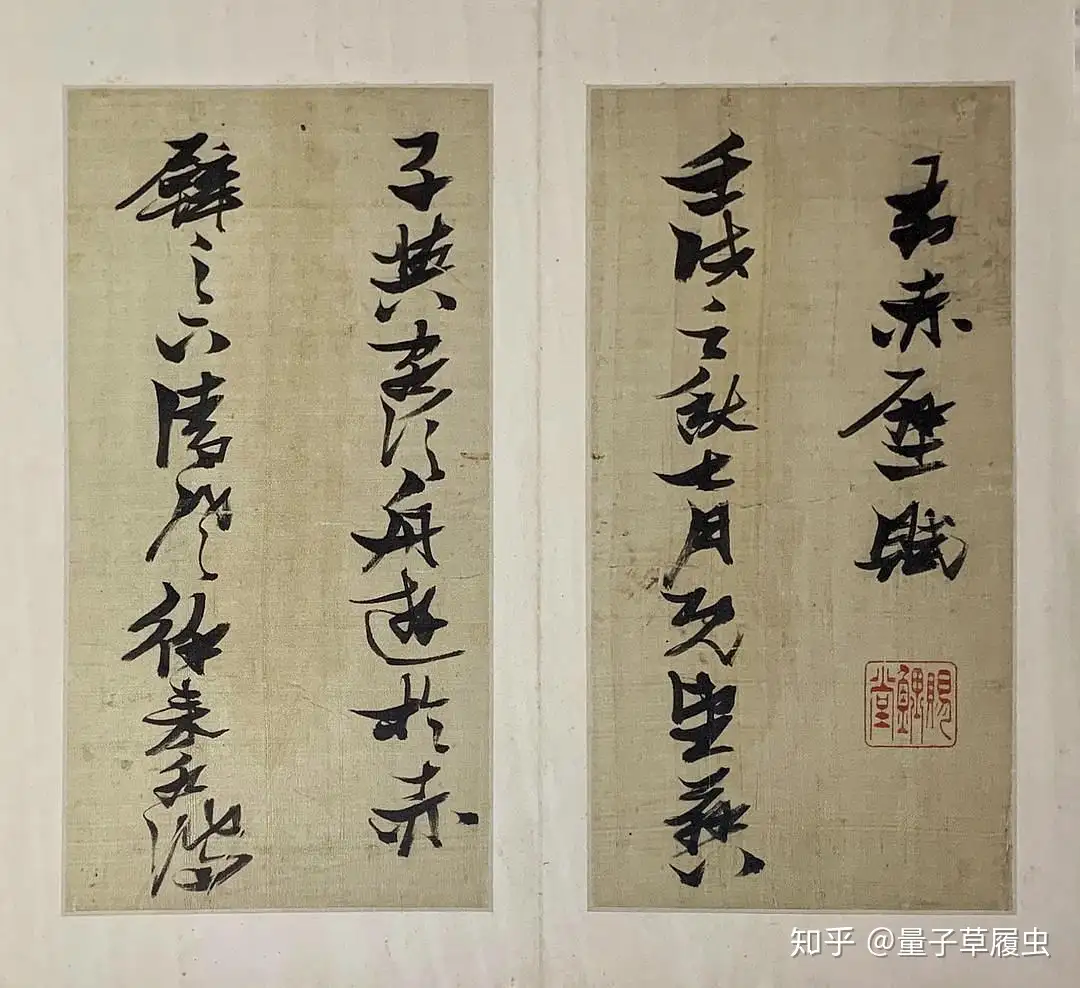 前赤壁賦
壬戌之秋七月既望蘇
子與客泛舟遊於赤
壁之下清風徐來水波
知乎 @量子草履虫